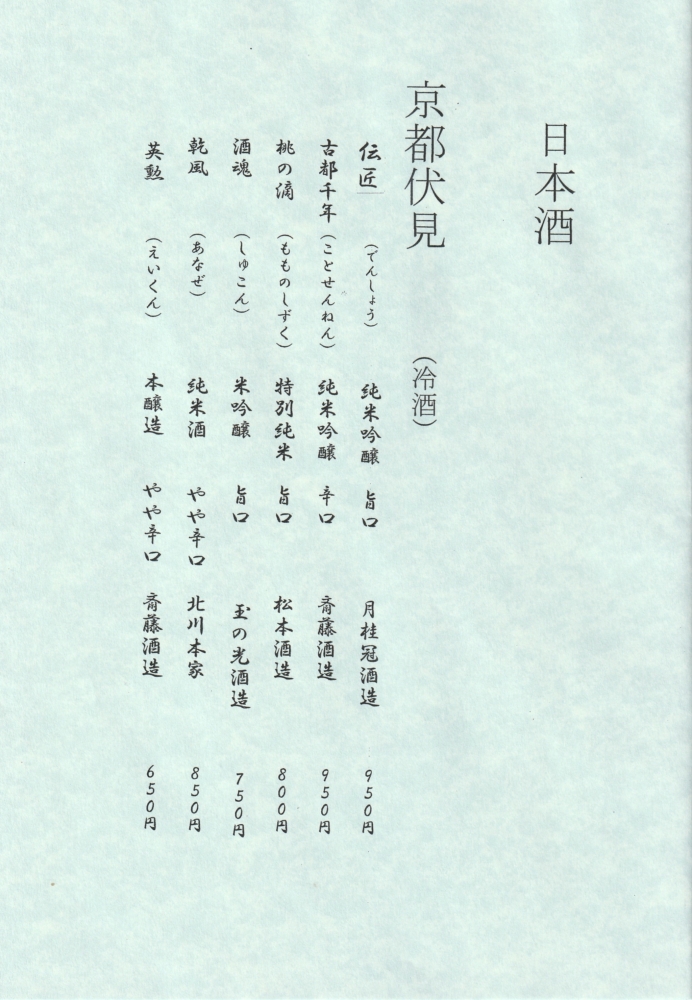 日本酒
京都伏見 (冷酒)
伝匠 (でんしょう) 純米吟醸 旨口 月桂冠酒造 950円
古都千年 (ことせんねん) 純米吟醸 辛口 斉藤酒造 950円
桃の滴 (もものしずく) 特別純米 旨口 松本酒造 800円
酒魂 (しゅこん) 米吟醸 旨口 玉の光酒造 750円
乾風 (あなぜ) 純米酒 やや辛口 北川本家 850円
英勲 (えいくん) 本醸造 やや辛口 斉藤酒造 650円